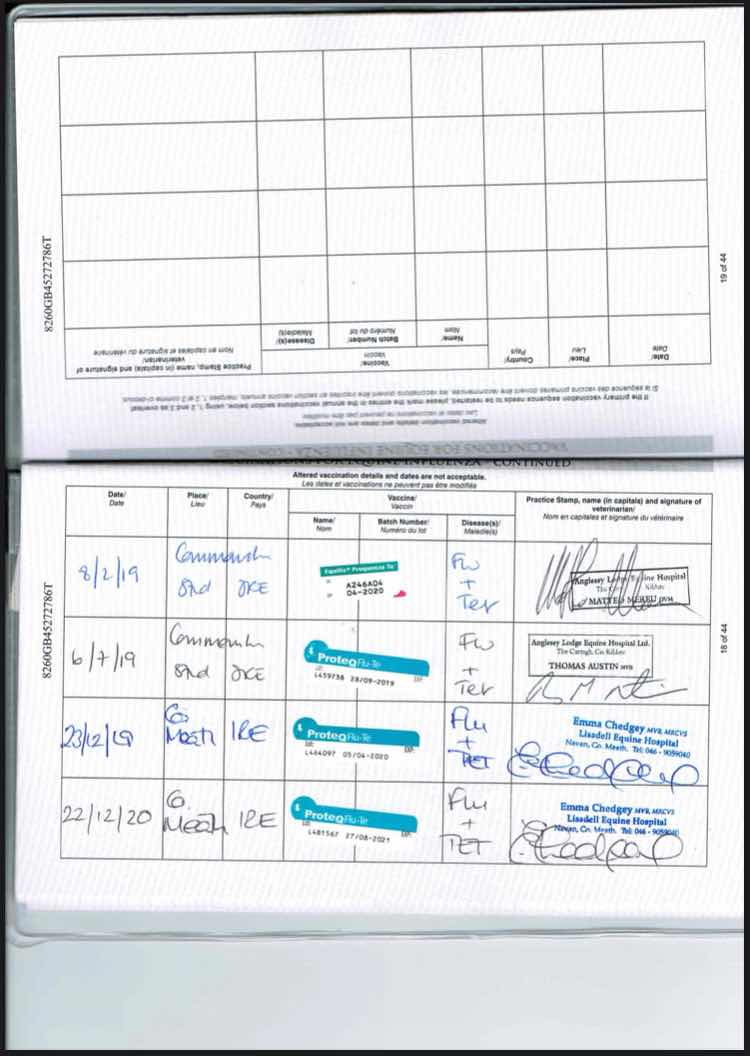 8260GB45272786T
19 of 44
VACCINATIONS FOR EQUINE INFLUENZA - CONTINUED
Altered vaccination details and dates are not acceptable.
Les dates et vaccinations ne peuvent pas être modifiés
If the primary vaccination sequence needs to be restarted, please mark the entries in the annual vaccinations section below, using 1, 2 and 3 as overleaf
Date/
Date
Place/
Lieu
Country/
Pays
Vaccine/
Vaccin
Name/
Nom
Batch Number/
Numéro du lot
Disease(s)/
Maladie(s)
Practice Stamp, name (in capitals) and signature of
veterinarian/
Nom en capitales et signature du vétérinaire
INFLUENZA - CONTINUED
Altered vaccination details and dates are not acceptable.
Les dates et vaccinations ne peuvent pas être modifiés
8260GB45272786T
18 of 44
Date/
Date
Place/
Lieu
Country/
Pays
Vaccine/
Vaccin
Name/
Nom
Batch Number/
Numéro du lot
Disease(s)/
Maladie(s)
Practice Stamp, name (in capitals) and signature of
veterinarian/
Nom en capitales et signature du vétérinaire
8/2/19
IRE
Equilis® Prequenza Te
A246A04
04-2020
Flu
+
Tet
Anglesey Lodge Equine Hospital
MATTEO MEREU DVM
6/7/19
IRE
ProteqFlu-Te
L459736 28/09-2019
Flu
+
Tet
Anglesey Lodge Equine Hospital Ltd.
The Curragh, Co. Kildare
THOMAS AUSTIN MVB
23/12/19
Co.
Meath
IRE
ProteqFlu-Te
L464097 05/04-2020
Flu
+
TET
Emma Chedgey MVB, MRCVS
Lisadell Equine Hospital
Navan, Co. Meath. Tel: 046 - 9059040
22/12/20
Co.
Meath
IRE
ProteqFlu-Te
L481567 27/08-2021
Flu
+
TET
Emma Chedgey MVB, MRCVS
Lisadell Equine Hospital
Navan, Co. Meath. Tel: 046 - 9059040